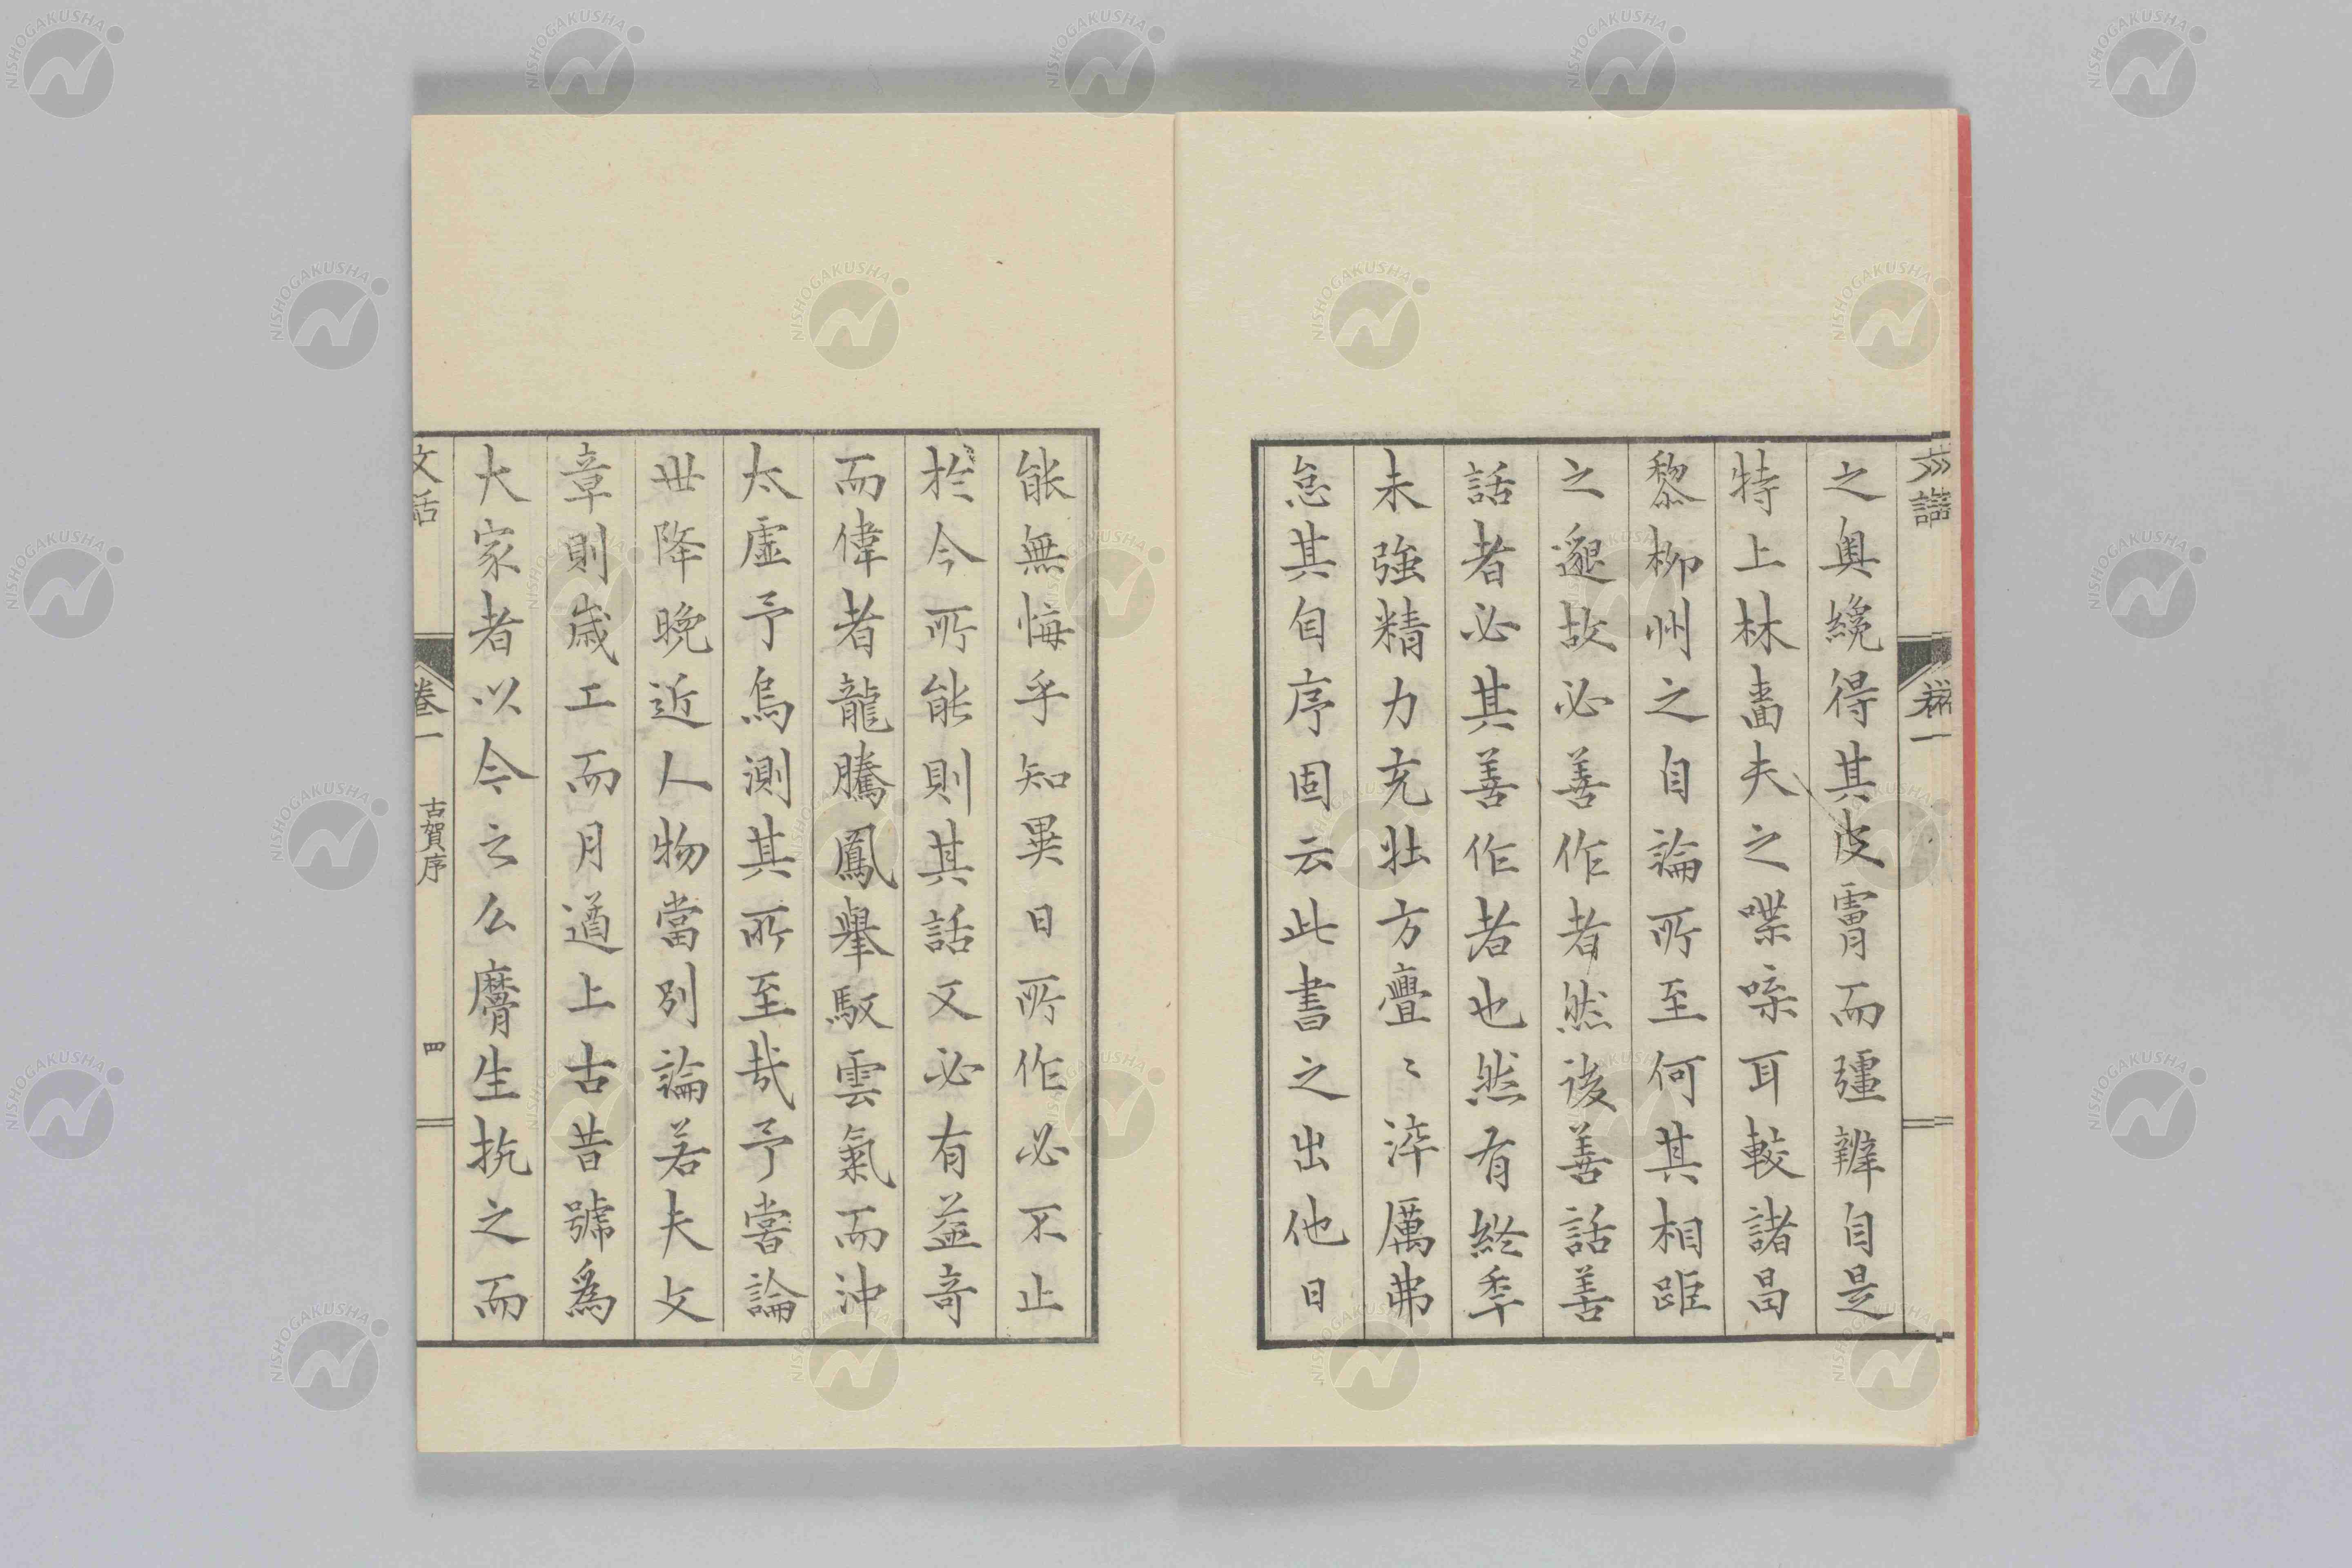 之奥纔得其皮膚而彊辨自是
特上林嗇夫之喋喋耳較諸昌
黎柳州之自論所至何其相距
之邈故必善作者然後善話善
話者必其善作者也然有終季
未強精力充壮方亹〻淬厲弗
怠其自序固云此書之出他日
能無悔乎知異日所作必不止
於今所能則其話文必有益奇
而偉者龍騰鳳舉馭雲氣而沖
太虛予烏測其所至哉予嘗論
世降晚近人物當別論若夫文
章則歲工而月遒上古昔號為
大家者以今之么麿生抗之而
文話
卷一
古賀序
四
NISHOGAKUSHA